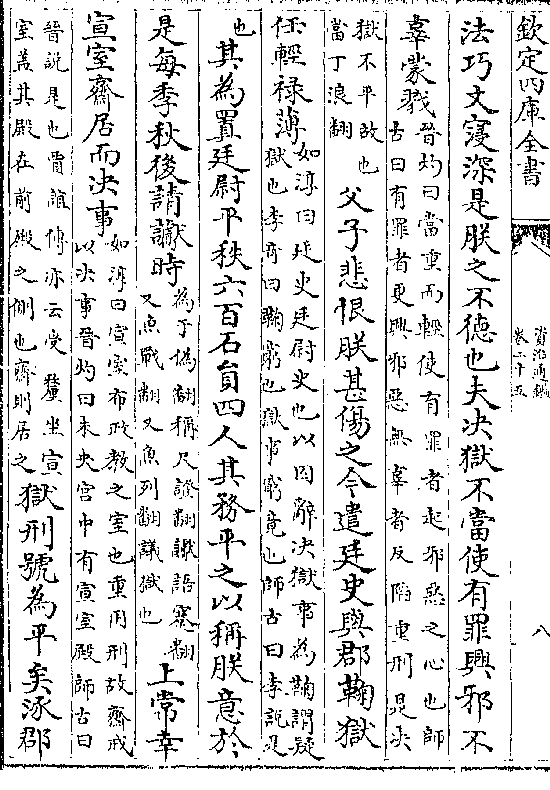 欽定四庫全書
資治通鑑
卷二十五
八
法巧文寖深是朕之不德也夫决獄不當使有罪興邪不
辜蒙戮晉灼曰當重而輕使有罪者起邪惡之心也師
古曰有罪者更興邪惡無辜者反陷重刑是决
獄不平故也
當丁浪翻父子悲恨朕甚傷之今遣廷史與郡鞠獄
任輕禄薄如淳曰廷史廷尉史也以囚辭决獄事為鞠謂疑
獄也李奇曰鞠窮也獄事窮竟也師古曰李說是
也其為置廷尉平秩六百石員四人其務平之以稱朕意於
是每季秋後請讞時為于偽翻稱尺證翻讞語蹇翻
又魚戰翻又魚列翻議獄也上常幸
宣室齋居而决事如淳曰宣室布政教之室也重用刑故齋戒
以决事晉灼曰未央宫中有宣室殿師古曰
晉說是也賈誼傳亦云受釐坐宣
室蓋其殿在前殿之側也齋則居之獄刑號為平矣涿郡